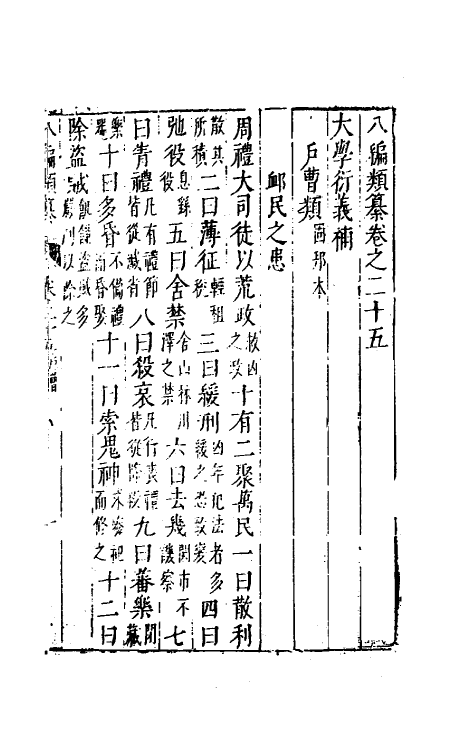 八編類纂卷之二十五
大學衍義補
戶曹類 固邦本
卹民之患
周禮大司徒以荒政救凶之政十有二聚萬民一曰散利
散其所積二曰薄征輕租稅三曰緩刑凶年犯法者多緩之恐致變四曰
弛役息繇役五曰舍禁舍山林川澤之禁六曰去幾關市不譏察七
曰眚禮凡有禮節皆從減省八曰殺哀凡行喪禮皆從降殺九曰蕃樂閉藏
樂器十曰多昏不備禮而昏娶十一曰索鬼神求廢祀而修之十二曰
除盜賊飢饉盜賊多刑以除之
八編類纂